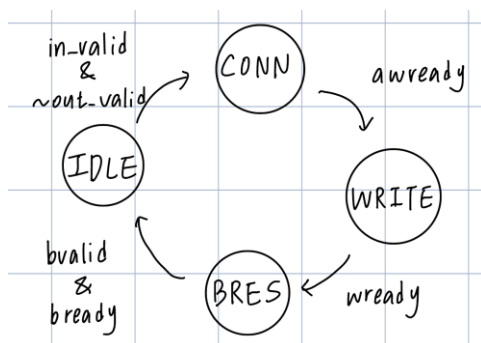 in_valid
&
~out_valid
CONN
awready
IDLE
WRITE
bvalid
&
bready
BRES
wready